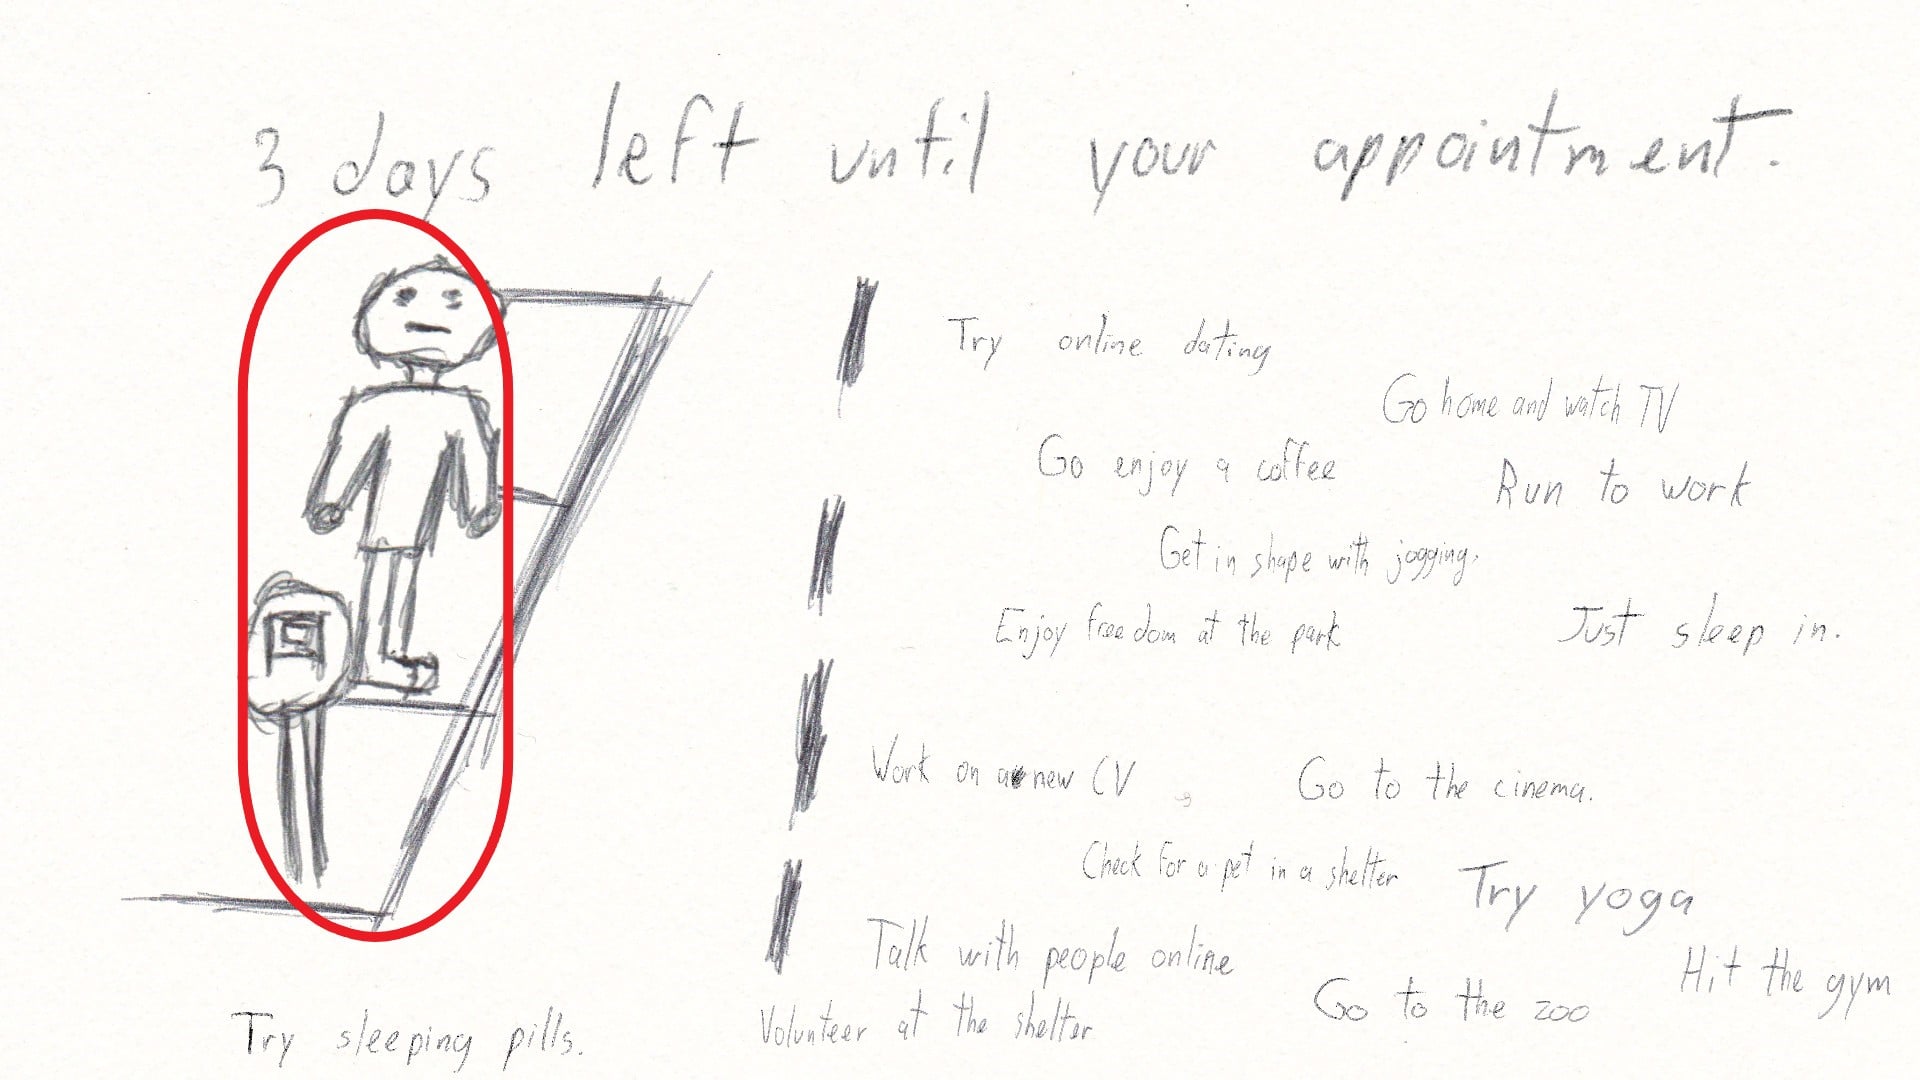 3 days left until your appointment.
Try online dating
Go home and watch TV
Go enjoy a coffee
Run to work
Get in shape with jogging.
Enjoy freedom at the park
Just sleep in.
Work on a new CV
Go to the cinema.
Check for a pet in a shelter
Try yoga
Talk with people online
Hit the gym
Go to the zoo
Volunteer at the shelter
Try sleeping pills.